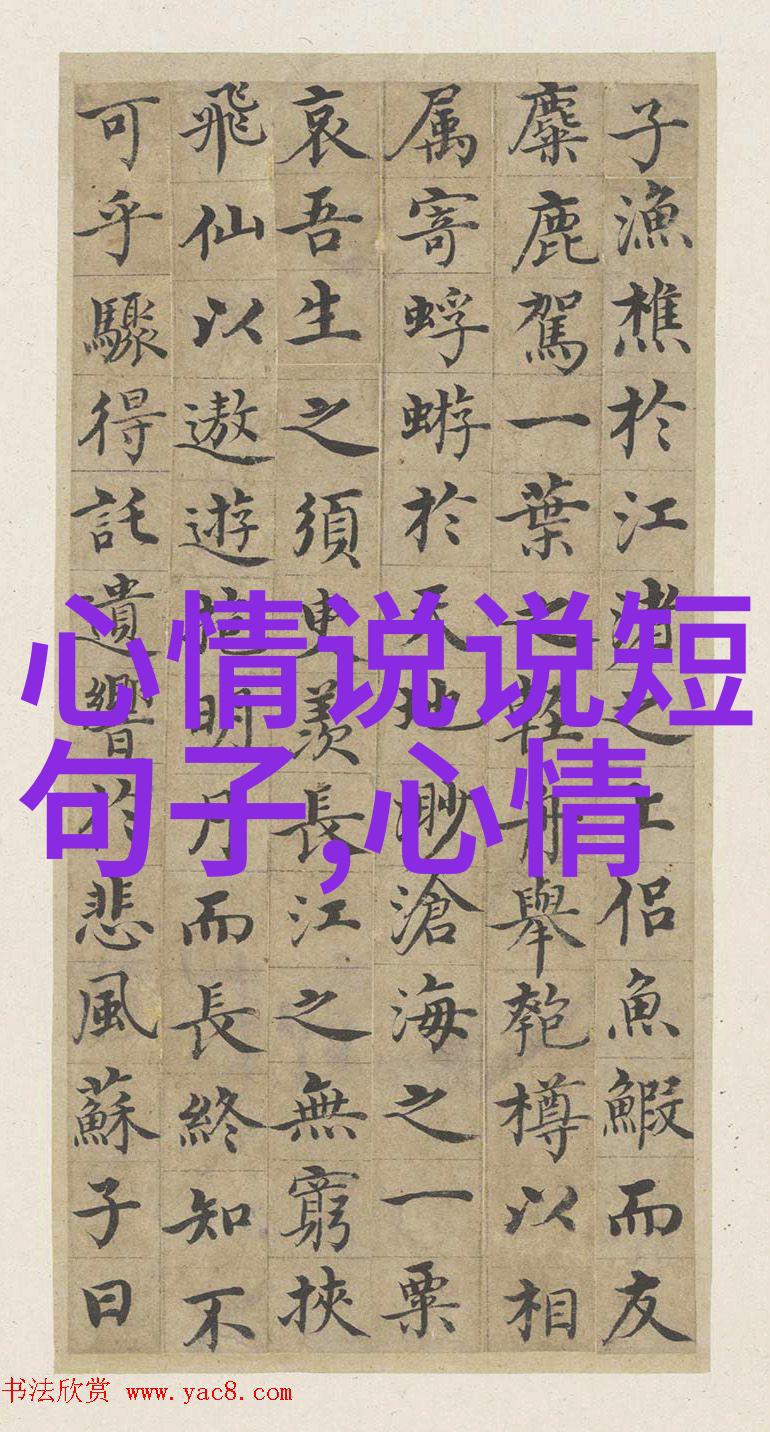 子漁樵於江渚之上侶魚鰕而友
麋鹿駕一葉之輕舟舉匏樽以相
属寄蜉蝣於天地渺滄海之一粟
哀吾生之須臾羨長江之無窮挾
飛仙以遨遊抱明月而長終知不
可乎驟得託遺響於悲風蘇子曰
心情说说短
句子,心情
书法欣赏 www.yac8.com